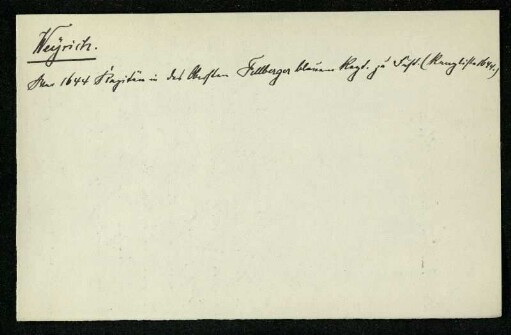 Weyrich.
War 1644 Kapitän in des Obersten Fellberger blauem Regt. zu Fuß. (Rangliste 1644.)